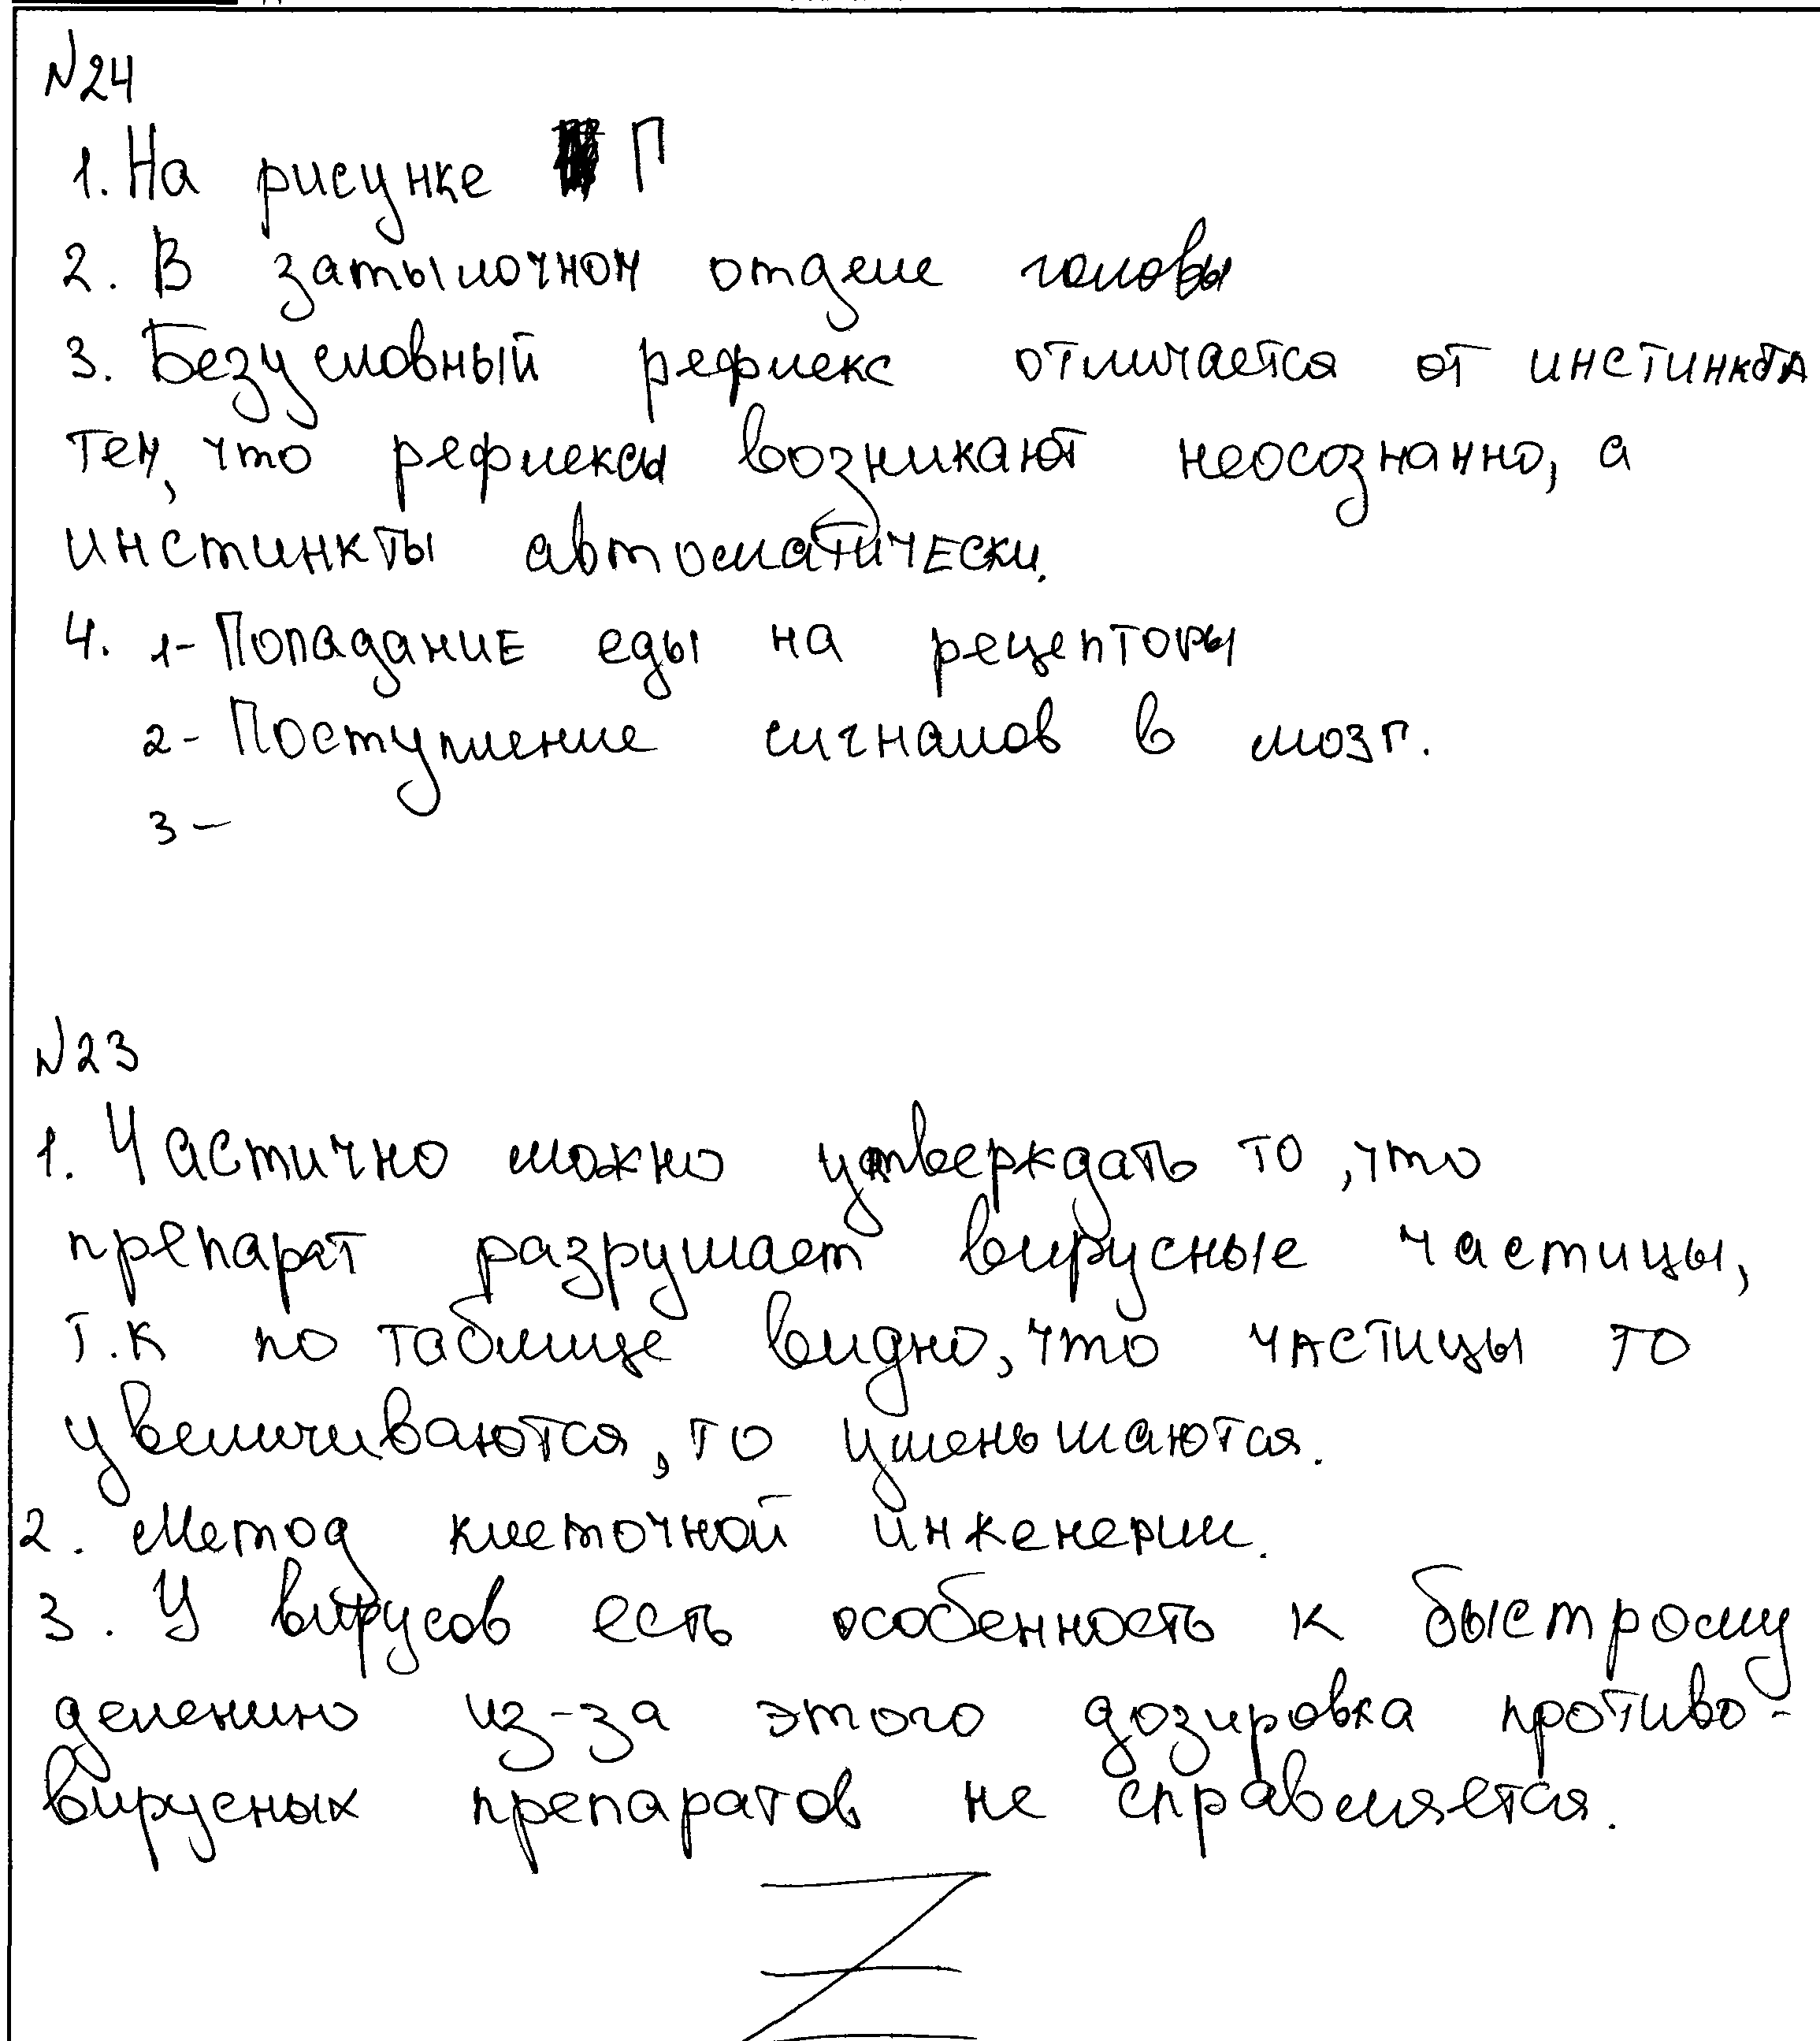 N24
1. На рисунке Г
2. В затылочном отделе головы
3. Безусловный рефлекс отличается от инстинкта
тем, что рефлексы возникают неосознанно, а
инстинкты автоматически.
4. 1- Попадание еды на рецепторы
2- Поступление сигналов в мозг.
3-
N23
1. Частично можно утверждать то, что
препарат разрушает вирусные частицы,
т.к по таблице видно, что частицы то
увеличиваются, то уменьшаются.
2. Метод клеточной инженерии.
3. У вирусов есть особенность к быстрому
делению из-за этого дозировка противо-
вирусных препаратов не справляется.